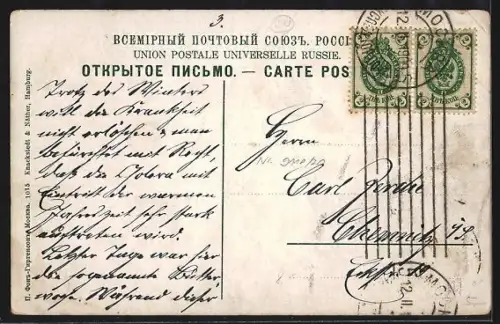 3.
ВСЕМІРНЫЙ ПОЧТОВЫЙ СОЮЗЪ. РОССІ
UNION POSTALE UNIVERSELLE RUSSIE.
ОТКРЫТОЕ ПИСЬМО. — CARTE POS
Trotz des Winters
will die Krankheit
nicht erlöschen & man
befürchtet mit Recht,
daß die Colera mit
Eintritt der warmen
Jahreszeit sehr stark
auftreten wird.
Letzter Tage war hier
die sogenannte Butter-
woche. Während dieser
Herrn
Carl
Chemnitz i/S.
П. Фонъ-Гиргенсонъ, Москва. 1015 Knackstedt & Näther, Hamburg.